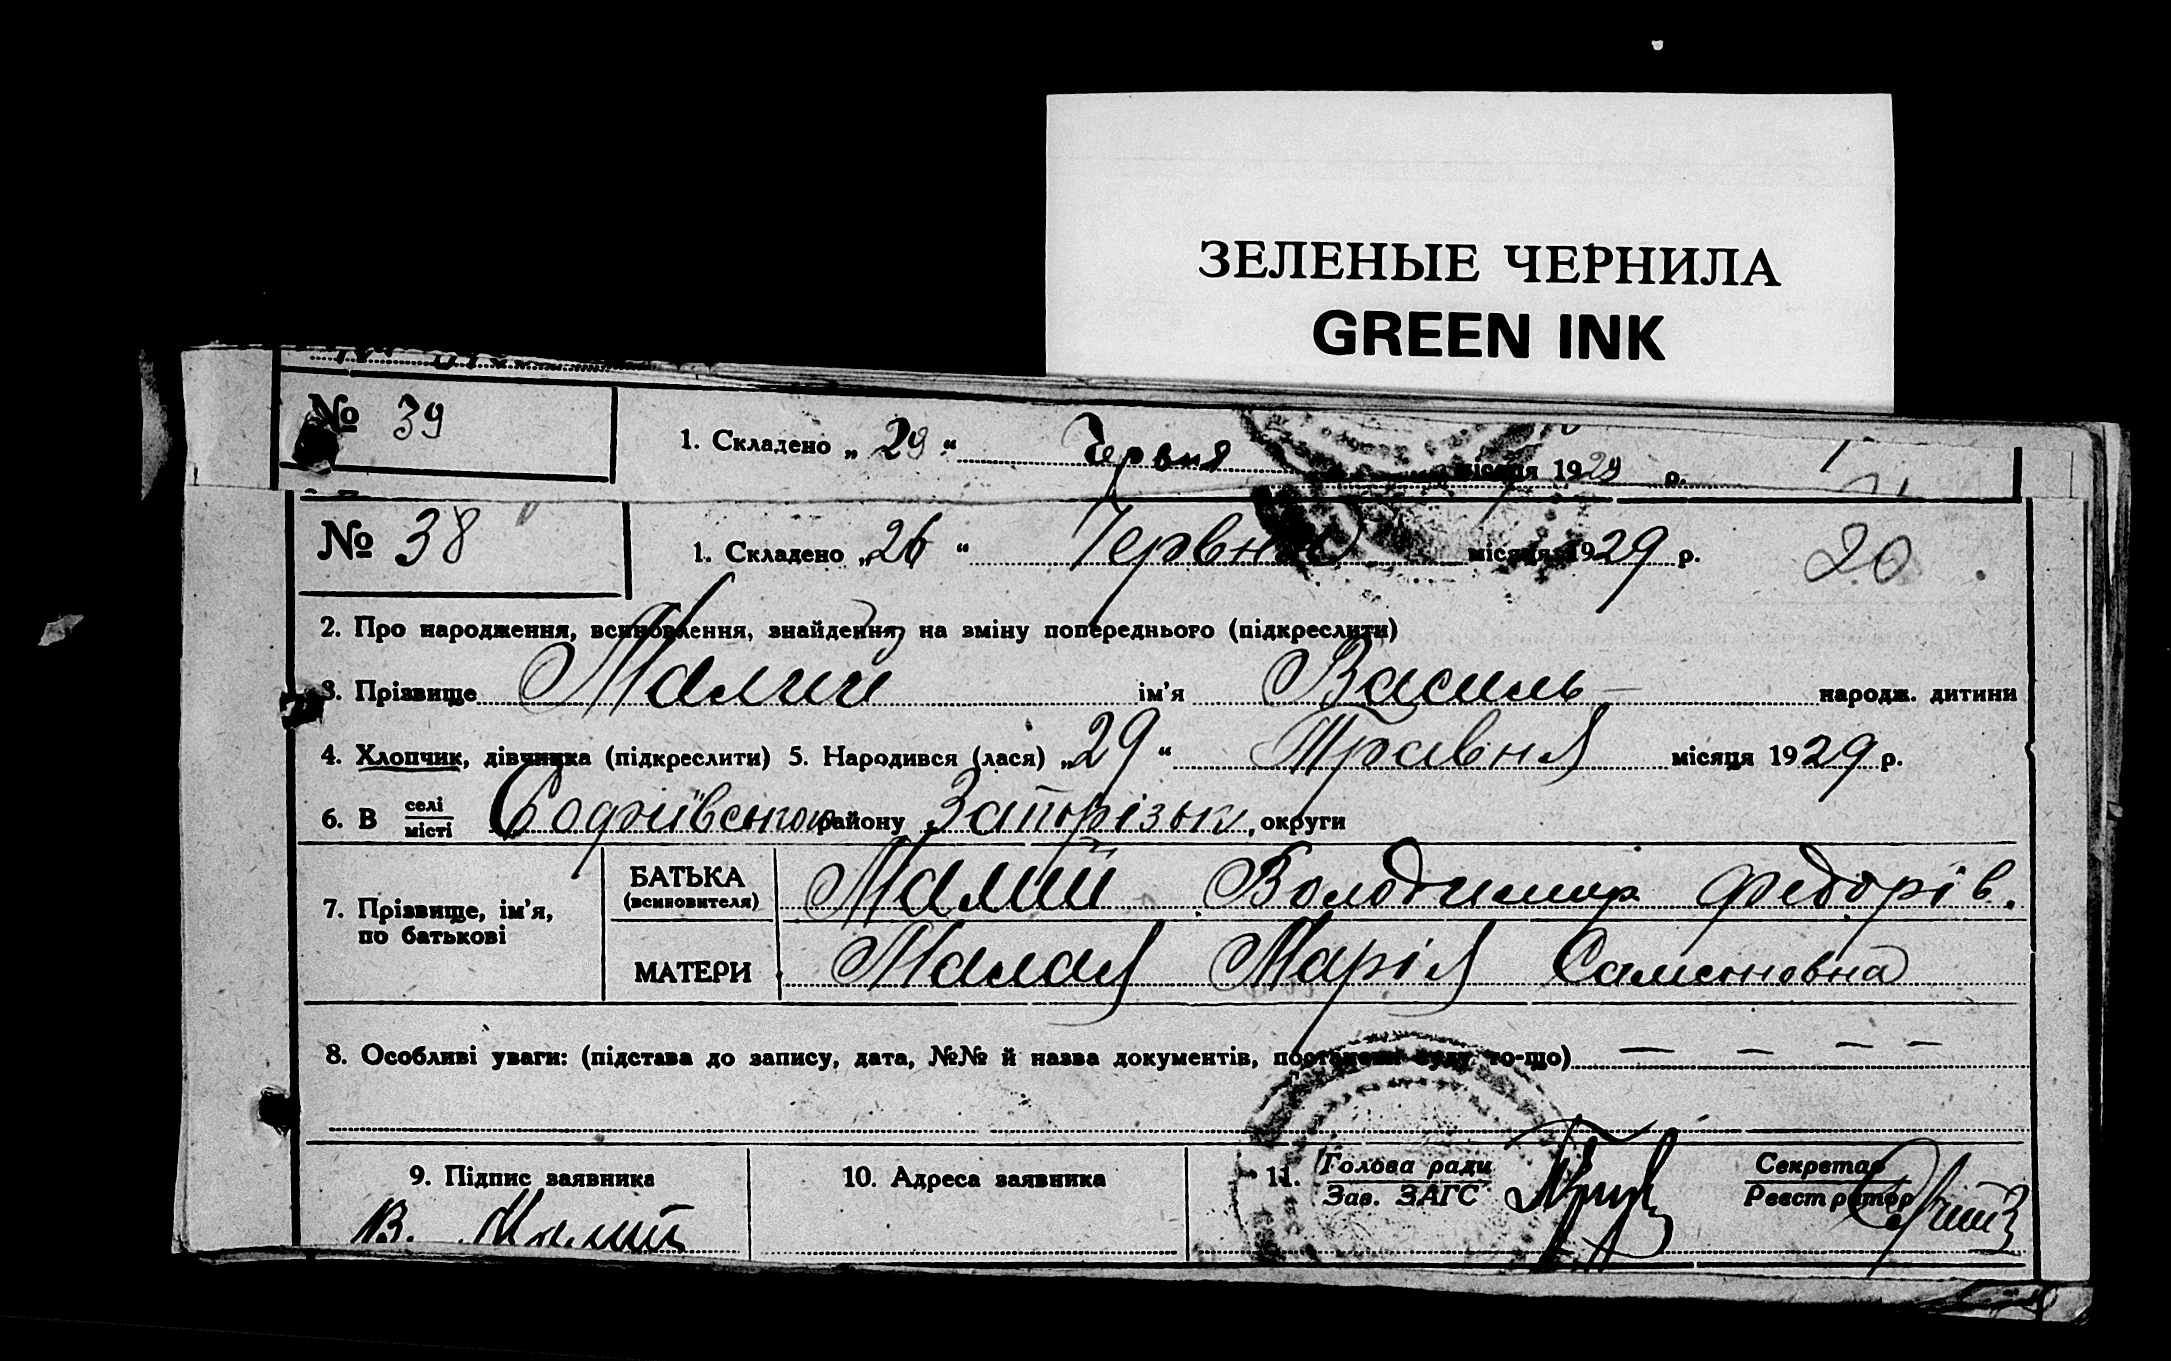 ЗЕЛЕНЫЕ ЧЕРНИЛА
GREEN INK
№ 39
1. Складено „ 29 “ Червня місяця 1929 р.
№ 38
1. Складено „26 “ Червня місяця 1929 р. 20
2. Про народження, всиновлення, знайдення, на зміну попереднього (підкреслити)
3. Прізвище Малий ім'я Василь народж. дитини
4. Хлопчик, дівчинка (підкреслити) 5. Народився (лася) „29 “ Травня місяця 1929 р.
6. В селі
місті Софиївського району Запорізьк. округи
7. Прізвище, ім'я,
по батькові
БАТЬКА
(всиновителя)
Малий Володимир Федорів.
МАТЕРИ
Малая Марія Саменовна
8. Особливі уваги: (підстава до запису, дата, №№ й назва документів, постанови суду то-що) — — — —
9. Підпис заявника
В. Малий
10. Адреса заявника
11. Голова ради
Зав. ЗАГС
Секретар
Реєстратор